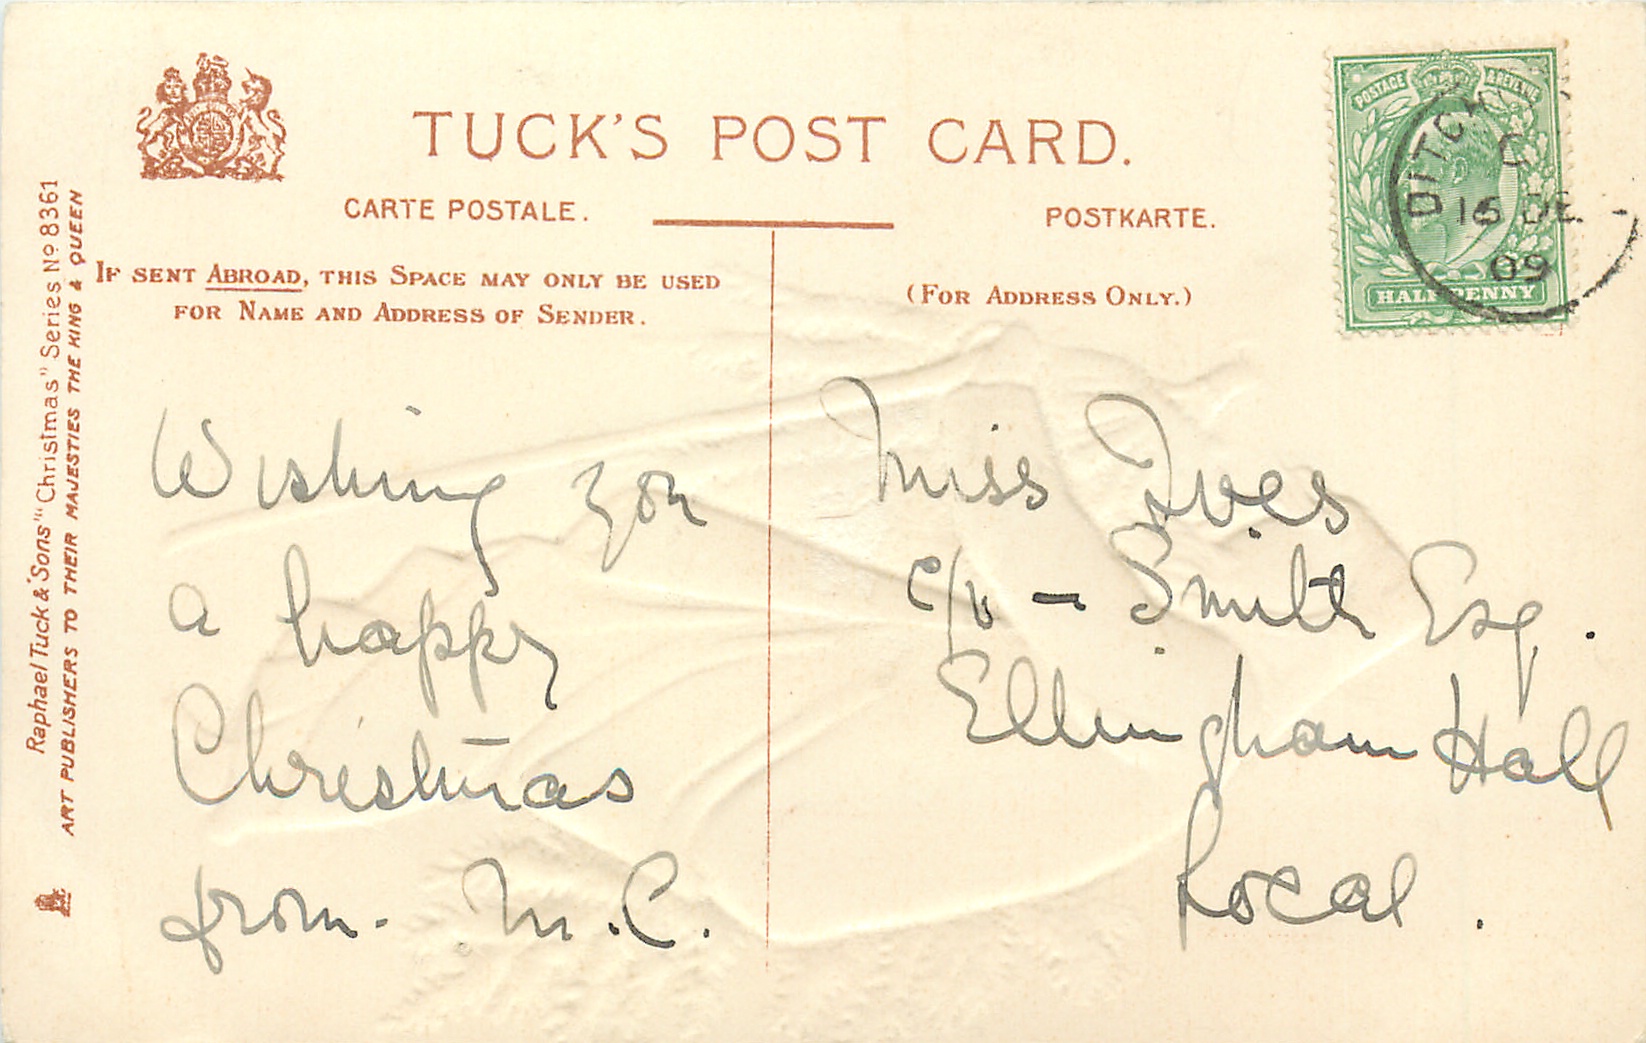 TUCK'S POST CARD.
CARTE POSTALE.
POSTKARTE.
IF SENT ABROAD, THIS SPACE MAY ONLY BE USED
FOR NAME AND ADDRESS OF SENDER.
(FOR ADDRESS ONLY.)
Raphael Tuck & Sons' "Christmas" Series No 8361
ART PUBLISHERS TO THEIR MAJESTIES THE KING & QUEEN
POSTAGE & REVENUE
HALFPENNY
C
DE
09
Wishing you
a happy
Christmas
from. M.C.
Miss Ives
c/o — Smith Esq.
Ellingham Hall
Local.